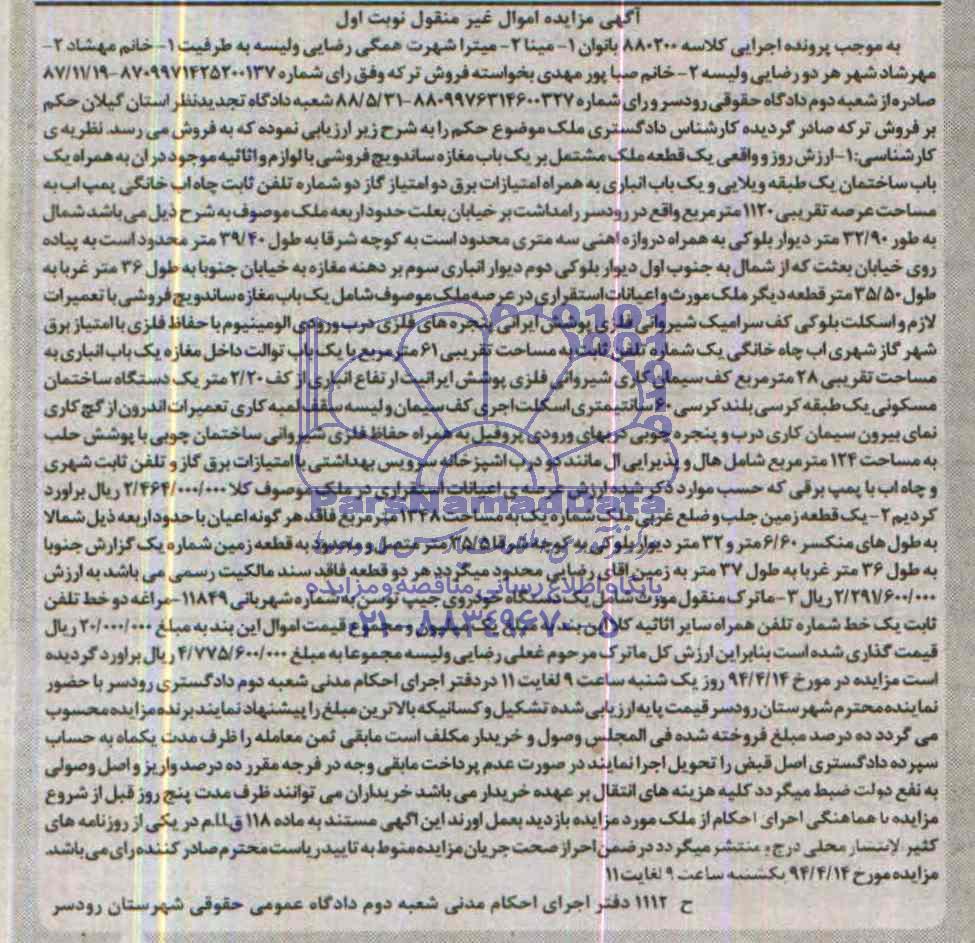 آگهی مزایده اموال غیر منقول نوبت اول
به موجب پرونده اجرایی کلاسه ۸۸۰۲۰۰ بانوان ۱- مینا ۲- میترا شهرت همگی رضایی ولیسه به طرفیت ۱- خانم مهشاد ۲-
مهرشاد شهر هر دو رضایی ولیسه ۲- خانم صبا پور مهدی بخواسته فروش ترکه وفق رای شماره ۸۷۰۹۹۷۱۴۲۵۲۰۰۱۳۷-۸۷/۱۱/۱۹
صادره از شعبه دوم دادگاه حقوقی رودسر و رای شماره ۸۸۰۹۹۷۶۳۱۴۶۰۰۳۲۷-۸۸/۵/۳۱ شعبه دادگاه تجدیدنظر استان گیلان حکم
بر فروش ترکه صادر گردیده کارشناس دادگستری ملک موضوع حکم را به شرح زیر ارزیابی نموده که به فروش می رسد. نظریه ی
کارشناسی: ۱-ارزش روز و واقعی یک قطعه ملک مشتمل بر یک باب مغازه ساندویچ فروشی با لوازم و اثاثیه موجود در ان به همراه یک
باب ساختمان یک طبقه ویلایی و یک باب انباری به همراه امتیازات برق دو امتیاز گاز دو شماره تلفن ثابت چاه اب خانگی پمپ اب به
مساحت عرصه تقریبی ۱۱۲۰ متر مربع واقع در رودسر رامداشت بر خیابان بعلت حدود اربعه ملک موصوف به شرح ذیل می باشد شمال
به طور ۳۲/۹۰ متر دیوار بلوکی به همراه دروازه اهنی سه متری محدود است به کوچه شرقا به طول ۳۹/۴۰ متر محدود است به پیاده
روی خیابان بعثت که از شمال به جنوب اول دیوار بلوکی دوم دیوار انباری سوم بر دهنه مغازه به خیابان جنوبا به طول ۳۶ متر غربا به
طول ۳۵/۵۰ متر قطعه دیگر ملک مورث و اعیانات استقراری در عرصه ملک موصوف شامل یک باب مغازه ساندویچ فروشی با تعمیرات
لازم و اسکلت بلوکی کف سرامیک شیروانی فلزی پوشش ایرانی پنجره های فلزی درب ورودی الومینیوم با حفاظ فلزی با امتیاز برق
شهر گاز شهری اب چاه خانگی یک شماره تلفن ثابت به مساحت تقریبی ۶۱ متر مربع با یک باب توالت داخل مغازه یک باب انباری به
مساحت تقریبی ۲۸ متر مربع کف سیمان کاری شیروانی فلزی پوشش ایرانیت ارتفاع انباری از کف ۲/۲۰ متر یک دستگاه ساختمان
مسکونی یک طبقه کرسی بلند کرسی ۶۰ سانتیمتری اسکلت اجری کف سیمان و لیسه سقف لمبه کاری تعمیرات اندرون از گچ کاری
نمای بیرون سیمان کاری درب و پنجره چوبی دربهای ورودی پروفیل به همراه حفاظ فلزی شیروانی ساختمان چوبی با پوشش حلب
به مساحت ۱۲۴ متر مربع شامل هال و پذیرایی ال مانند دو درب اشپزخانه سرویس بهداشتی با امتیازات برق گاز و تلفن ثابت شهری
و چاه اب با پمپ برقی که حسب موارد ذکر شده ارزش عرصه ی اعیانات استقراری در ملک موصوف کلا ۲/۴۶۴/۰۰۰/۰۰۰ ریال براورد
کردیم ۲- یک قطعه زمین جلب و ضلع غربی ملک شماره یک به مساحت ۱۳۴۸ متر مربع فاقد هر گونه اعیان با حدود اربعه ذیل شمالا
به طول های منکسر ۶/۶۰ متر و ۳۲ متر دیوار بلوکی به کوچه شرقا ۳۵/۵ متر متصل و محدود به قطعه زمین شماره یک گزارش جنوبا
به طول ۳۶ متر غربا به طول ۳۷ متر به زمین اقای رضایی محدود میگردد هر دو قطعه فاقد سند مالکیت رسمی می باشد به ارزش
۲/۲۹۱/۶۰۰/۰۰۰ ریال ۳-ماترک منقول مورث شامل یک دستگاه خودروی جیپ توسن به شماره شهربانی ۱۱۸۴۹-مراغه دو خط تلفن
ثابت یک خط شماره تلفن همراه سایر اثاثیه کلا این بند مجموع قیمت اموال این بند به مبلغ ۲۰/۰۰۰/۰۰۰ ریال
قیمت گذاری شده است بنابراین ارزش کل ماترک مرحوم غعلی رضایی ولیسه مجموعا به مبلغ ۴/۷۷۵/۶۰۰/۰۰۰ ریال براورد گردیده
است مزایده در مورخ ۹۴/۴/۱۴ روز یک شنبه ساعت ۹ لغایت ۱۱ در دفتر اجرای احکام مدنی شعبه دوم دادگستری رودسر با حضور
نماینده محترم شهرستان رودسر قیمت پایه ارزیابی شده تشکیل و کسانیکه بالاترین مبلغ را پیشنهاد نمایند برنده مزایده محسوب
می گردد ده درصد مبلغ فروخته شده فی المجلس وصول و خریدار مکلف است مابقی ثمن معامله را ظرف مدت یکماه به حساب
سپرده دادگستری اصل قبض را تحویل اجرا نمایند در صورت عدم پرداخت مابقی وجه در فرجه مقرر ده درصد واریز و اصل وصولی
به نفع دولت ضبط میگردد کلیه هزینه های انتقال بر عهده خریدار می باشد خریداران می توانند ظرف مدت پنج روز قبل از شروع
مزایده با هماهنگی اجرای احکام از ملک مورد مزایده بازدید بعمل اورند این اگهی مستند به ماده ۱۱۸ ق.ا.م در یکی از روزنامه های
کثیر الانتشار محلی درج و منتشر میگردد در ضمن احراز صحت جریان مزایده منوط به تایید ریاست محترم صادر کننده رای می باشد.
مزایده مورخ ۹۴/۴/۱۴ یکشنبه ساعت ۹ لغایت ۱۱
ح ۱۱۱۲ دفتر اجرای احکام مدنی شعبه دوم دادگاه عمومی حقوقی شهرستان رودسر
ParsNamadData
پایگاه اطلاع رسانی مناقصه و مزایده
۰۲۱-۸۸۳۴۹۶۷۰-۵